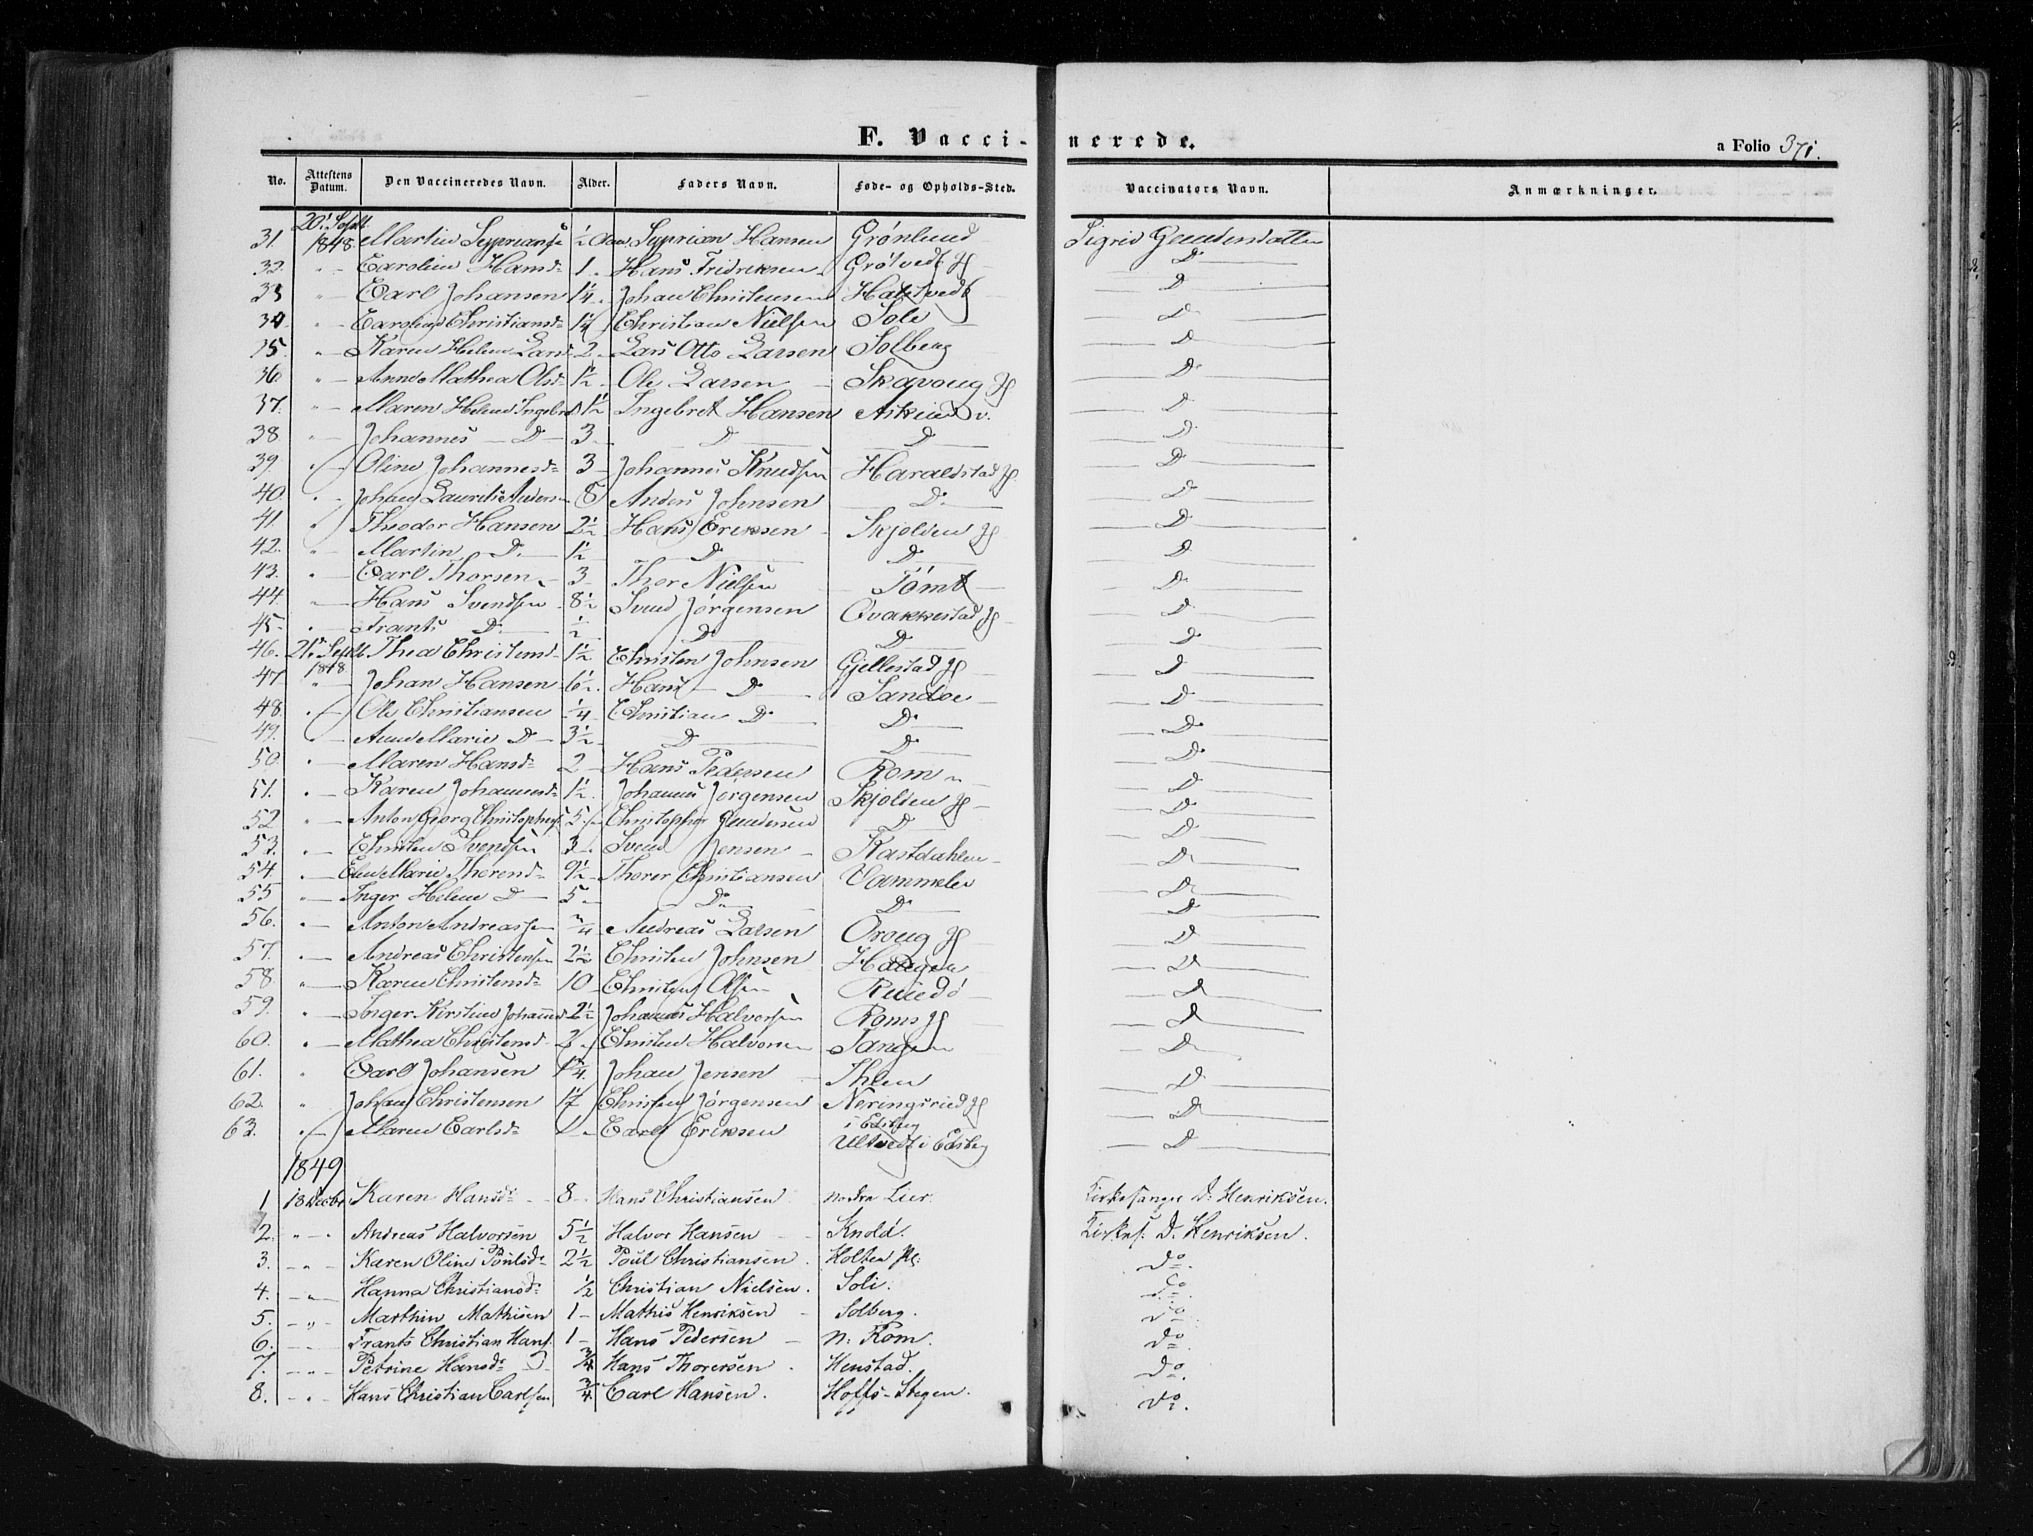 F. Vaccinerede.
a Folio 371.
No. Attestens Datum. Den Vaccineredes Navn. Alder. Faders Navn. Føde- og Opholds-Sted. Vaccinators Navn. Anmærkninger.
31. 20. Septb 1848 Martin 1/2 Aar Syprian Hansen Grønlund Sigrid Gundersdatter
32. " Caroline Hansd 1 Hans Fridriksen Grötvedt D
33 " Carl Johansen 1 1/4 Johan Christensen D
34. " Caroline Christiansd 1 1/4 Christian Nielsen Soli D
35. " Karen Helene Larsd 2 Lars Otto Larsen Solberg D
36 " Anne Mathea Olsd 1 1/2 Ole Larsen Skavoug D
37. " Maren Helene Ingebr 1 1/2 Ingebret Hansen D
38. " Johannes D 3 D D D
39. " Oline Johannesd 3 Johannes Knudsen Haraldstad D
40. " Johan Laurits Anders 8 Anders Johnsen D D
41. " Theodor Hansen 2 1/2 Hans Eriksen Skjolden D
42. " Martin D 1 1/2 D D D
43. " Carl Thorsen 3 Thor Nielsen Tomt D
44. " Hans Svendsen 8 1/2 Svend Jørgensen Qvakkestad D
45. " Frants D 1/2 D D D
46. 21. Septb 1848 Thea Christensd 1 1/2 Christen Johnsen Gjellestad D
47 " Johan Hansen 6 1/2 Hans D Sandøe D
48. " Ole Christiansen 1/4 Christian D D D
49. " Anne Marie D 3 1/2 D D D
50. " Maren Hansd 2 Hans Pedersen Rom D
51. " Karen Johannesd 1 1/2 Johannes Jørgensen Skjolden D
52. " Anton Georg Christophers 5 Christopher Gundersen D D
53. " Christen Svendsen 3 Svend Jensen Kastdahlen D
54. " Elen Marie Thorend 9 1/2 Thorer Christiansen Vammeler D
55 " Inger Helene D 5 D D D
56. " Anton Andreassen 3/4 Andreas Larsen Oroug D
57. " Andreas Christensen 2 1/2 Christen Johnsen Haugen D
58. " Karen Christensd 10 Christen Olsen D
59. " Inger Kirstine Johannesd 2 1/2 Johannes Halvorsen Roms D
60. " Mathea Christensd Christen Halvorsen Tangen D
61. " Carl Johansen Johan Jensen Ihlen D
62. " Johan Christensen 17 Christen Jørgensen i Edsberg D
63. " Maren Carlsd 1 Carl Eriksen Ultvedt i Edsberg D
1849
1 18 Decbr Karen Hansd 8 Hans Christiansen nordre Lur. Kirkesanger D. Henriksen.
2. " Andreas Halvorsen 5 1/2 Halvor Hansen Knold. Kirkes. D. Henriksen.
3. " Karen Oline Poulsd 2 1/2 Poul Christiansen Holten Do
4. " Hanna Christiansd 1/2 Christian Nielsen. Soli. Do
5. " Marthin Mathisen 1 Mathis Henriksen Solberg. Do
6. " Frants Christian Hans. 1 Hans Pedersen n. Rom. Do
7. " Petrine Hansd 3/4 Hans Thorersen Henstad. Do
8. " Hans Christian Carlsen 3/4 Carl Hansen. Hoffs-Stegen. Do